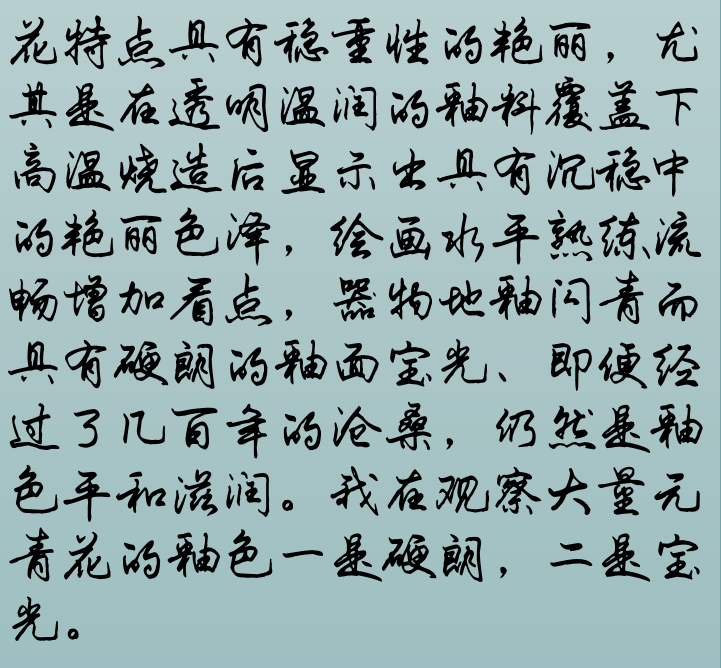 花特点具有稳重性的艳丽，尤
其是在透明温润的釉料覆盖下
高温烧造后显示出具有沉稳中
的艳丽色泽，绘画水平熟练流
畅增加看点，器物地釉闪青而
具有硬朗的釉面宝光、即便经
过了几百年的沧桑，仍然是釉
色平和滋润。我在观察大量元
青花的釉色一是硬朗，二是宝
光。